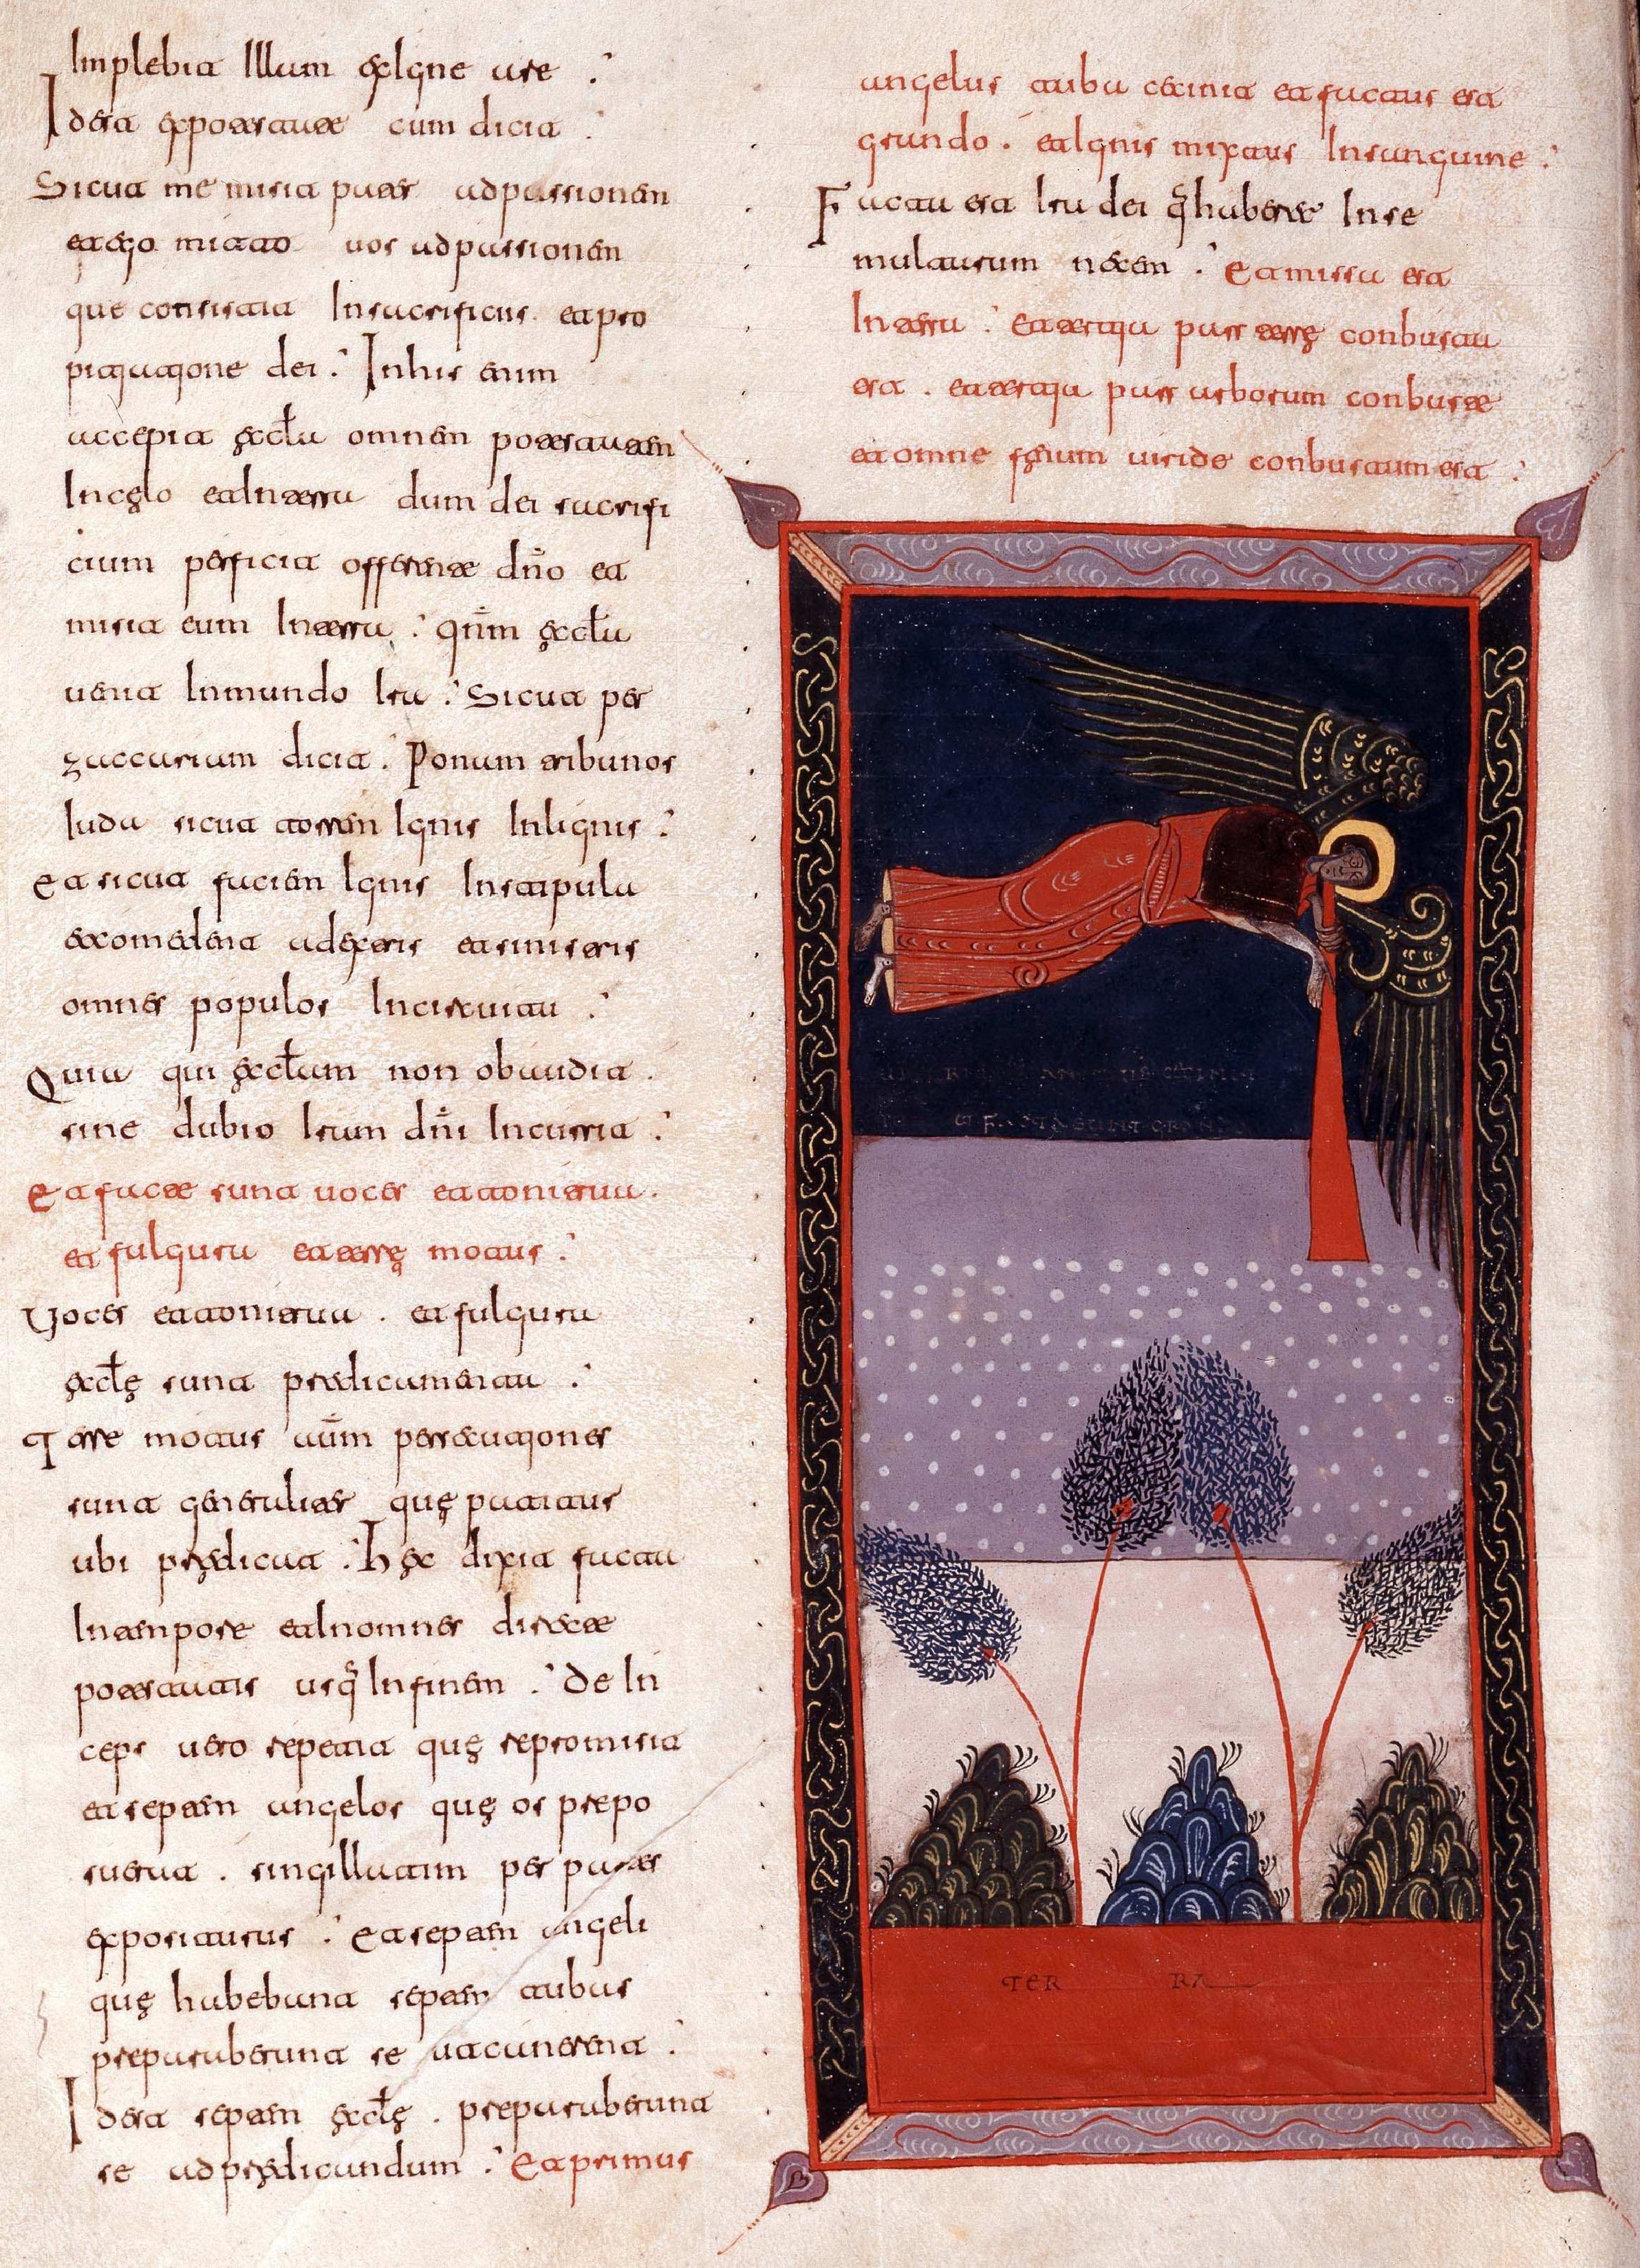 Implebit Illum exIgne are .
Idest expotestate cum dicit .
Sicut me misit pater adpassionem
etego mitto uos adpassionem
que consistit Insacrificiis etpro
pitiatione dei . Inhis enim
accepit ęccłа omnem potestatem
Incęlo etInterra dum dei sacrifi
cium perficit offerente dn̄o et
misit eum Interra . qnm̄ ęccłа
uenit Inmundo Ira . Sicut per
zaccarium dicit . Ponam tribunos
Iuda sicut torrem Ignis Inlignis .
Et sicut faciem Ignis Instipula
etcomedent adextris etsinistris
omnes populos Incircuitu .
Quia qui ęccłam non obaudit .
sine dubio Iram dn̄i Incurrit .
Et facte sunt uoces ettonitrua .
et fulgura etterrę motus .
Uoces ettonitrua . et fulgura
ęccłę sunt predicamenta .
Terre motus aūm persecutiones
sunt generaliter quę patiatur
ubi prędicat . Hęc dixit facta
Intempore etInomnes directe
potestatis usq̄ Infinem . De In
ceps uero repetit quę repromisit
et septem angelos quę os prepo
suerat . singillatim per partes
expositurus . Et septem angeli
quę habebant septem tubas
preparaberunt se utcanerent .
Idest septem ęccłę . preparaberunt
se adprędicandum . Et primus
angelus tuba cecinit et factus est
grando . etIgnis mixtus Insanguine .
Facta est Ira dei q̄ haberet Inse
multarum necem . Et missa est
Interra . Et tertia pars terrę conbusta
est . et tertia pars arborum conbuste
et omne fęnum uiride conbustum est .
ANGELUS CECINIT
ET FACTA SUNT GRANDO
TER RA